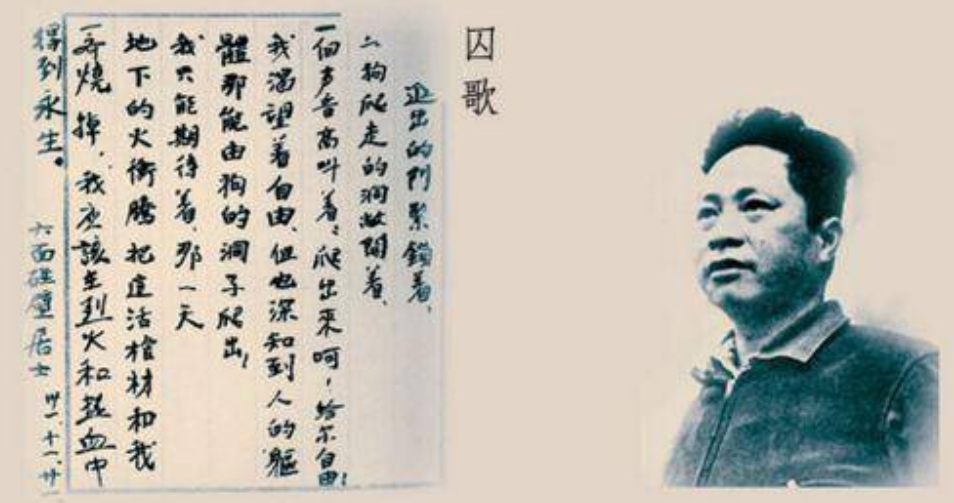 囚歌
出的門緊鎖着、
狗爬走的洞敞開着、
一個声音高叫着:爬出來呵,給尔自由!
我渴望着自由、但也深知到人的軀
體那能由狗的洞子爬出!
我只能期待着、那一天
地下的火衝騰把這活棺材和我
一齊燒掉,我应該在烈火和熱血中
得到永生。
六面碰壁居士 卅一、十一、廿一